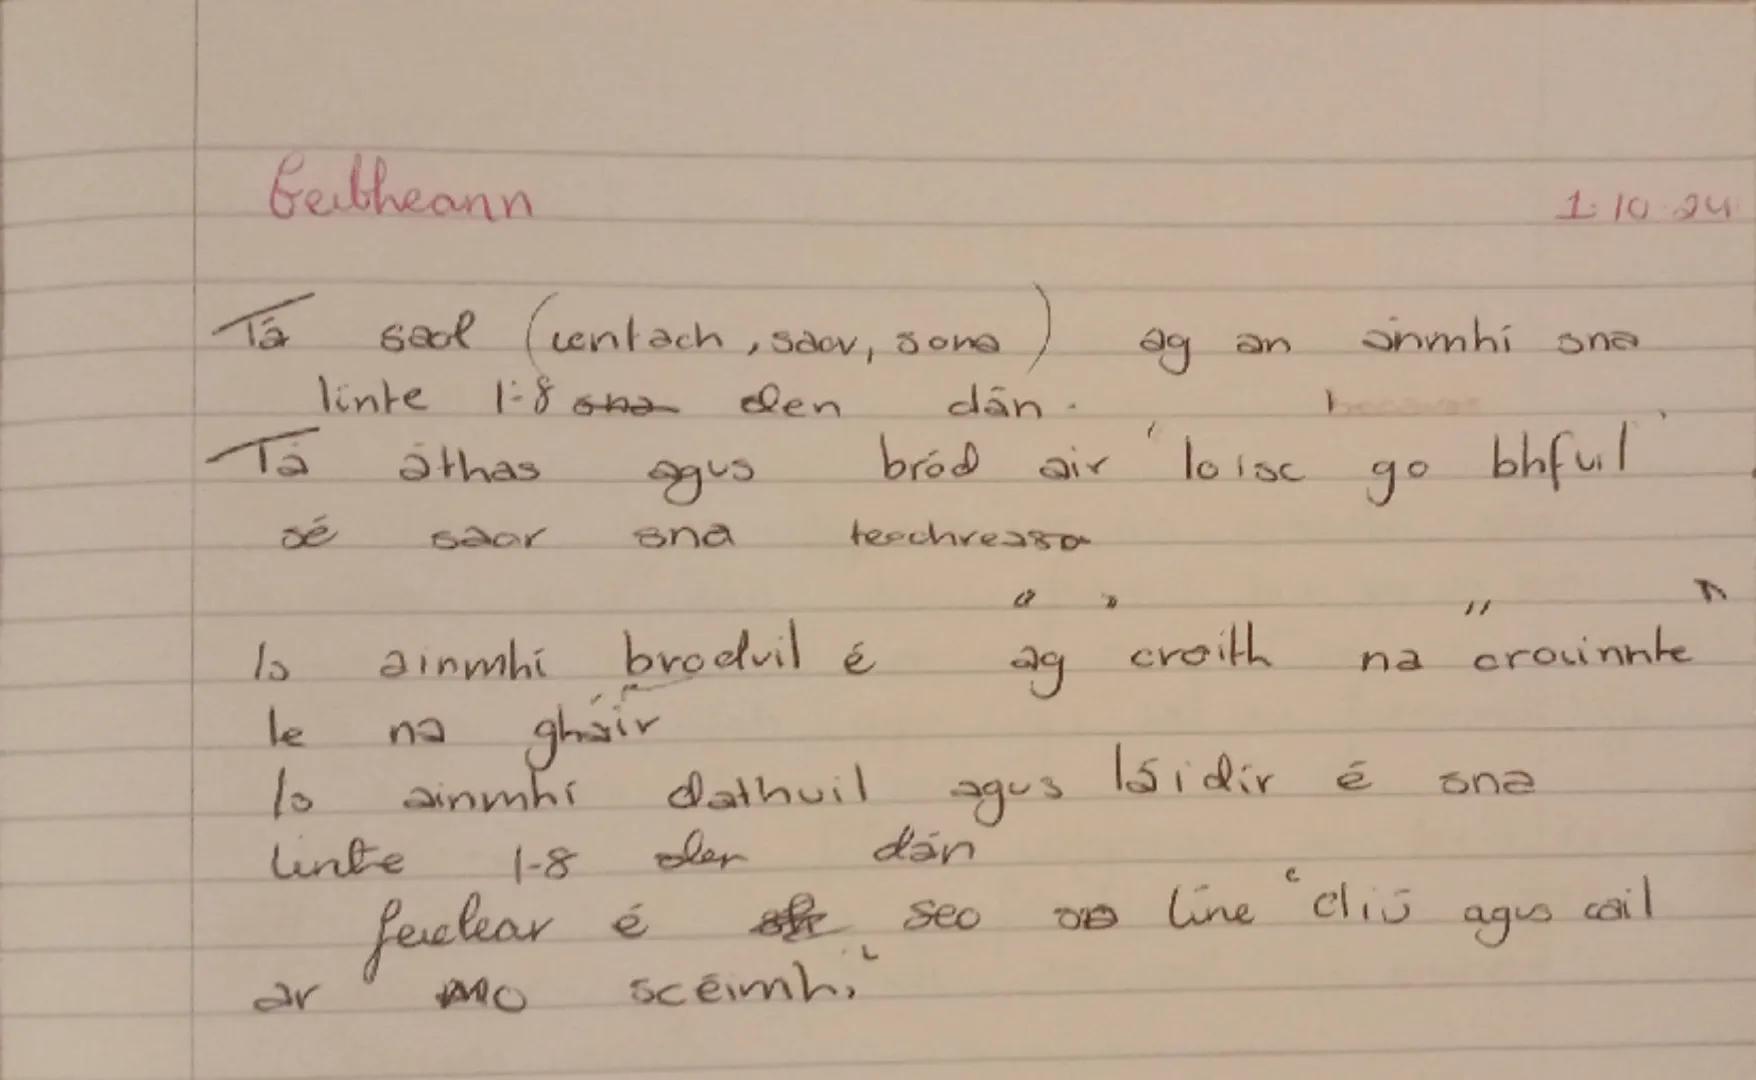 Geibheann 1.10.24
Tá saol (iontach, saor, sona) ag an ainmhí sna
línte 1-8 sna den dán.
Tá áthas agus bród air loisc go bhfuil
sé saor sna teochreasa
Is ainmhí broduil é ag "croith na crouinnte"
le na gháir
Is ainmhí dathuil agus láidir é sna
línte 1-8 den dán
feictear é seo sa líne "cliú agus cáil
ar mo scéimh"